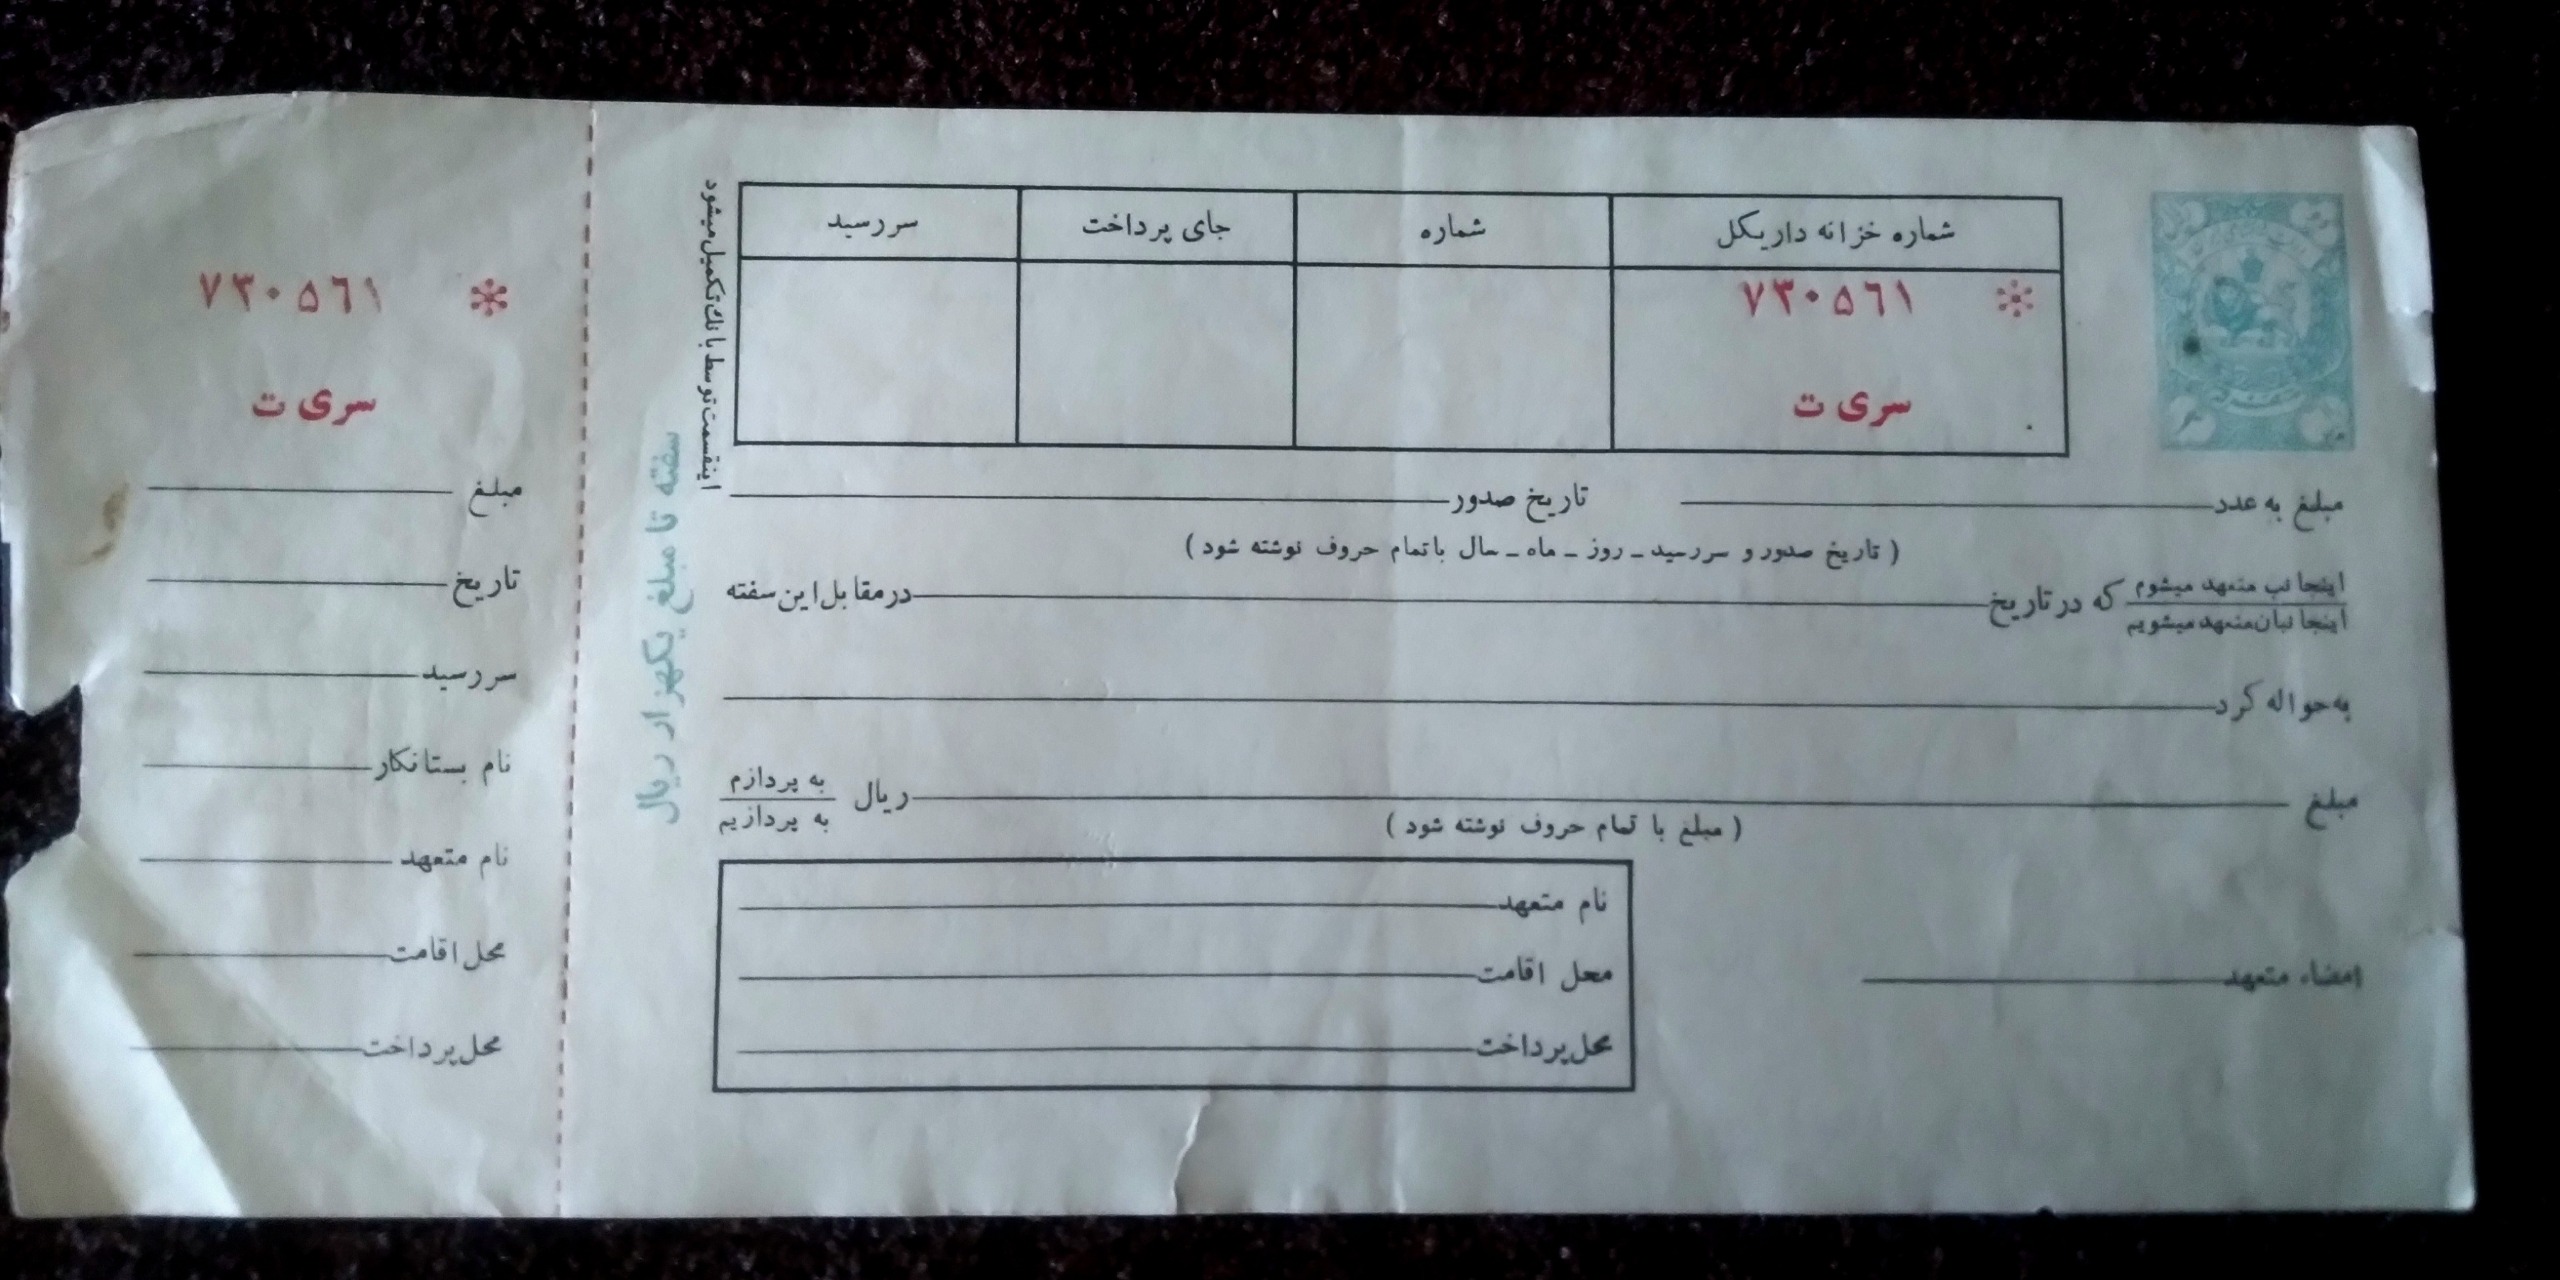 شماره خزانه داریکل
شماره
جای پرداخت
سررسید
۷۳۰۵۶۱ *
سری ت
اینقسمت توسط بانك تکمیل میشود
سفته تا مبلغ یکهزار ریال
مبلغ به عدد
تاریخ صدور
( تاریخ صدور و سررسید ـ روز ـ ماه ـ سال باتمام حروف نوشته شود )
اینجانب متعهد میشوم
اینجانبان متعهد میشویم
که در تاریخ
در مقابل این سفته
به حواله کرد
مبلغ
ریال
به پردازم
به پردازیم
( مبلغ با تمام حروف نوشته شود )
نام متعهد
محل اقامت
محل پرداخت
امضاء متعهد
۷۳۰۵۶۱ *
سری ت
مبلغ
تاریخ
سررسید
نام بستانکار
نام متعهد
محل اقامت
محل پرداخت